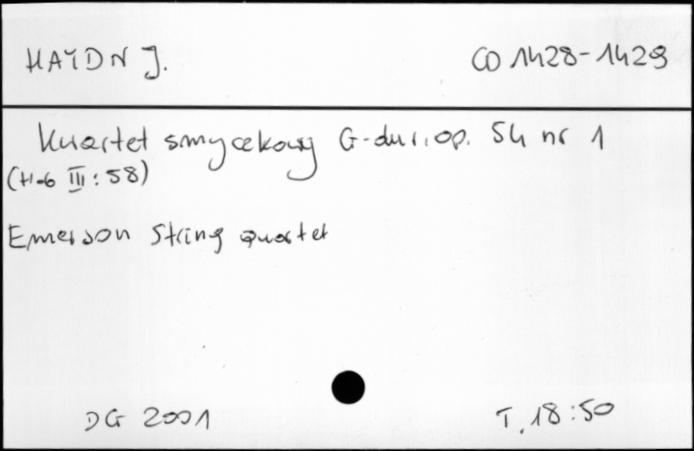 HAYDN J. CD 1428-1429
Kwartet smyczkowy G-dur, op. 54 nr 1
(Hob III: 58)
Emerson String Quartet
DG 2001 T. 18:50